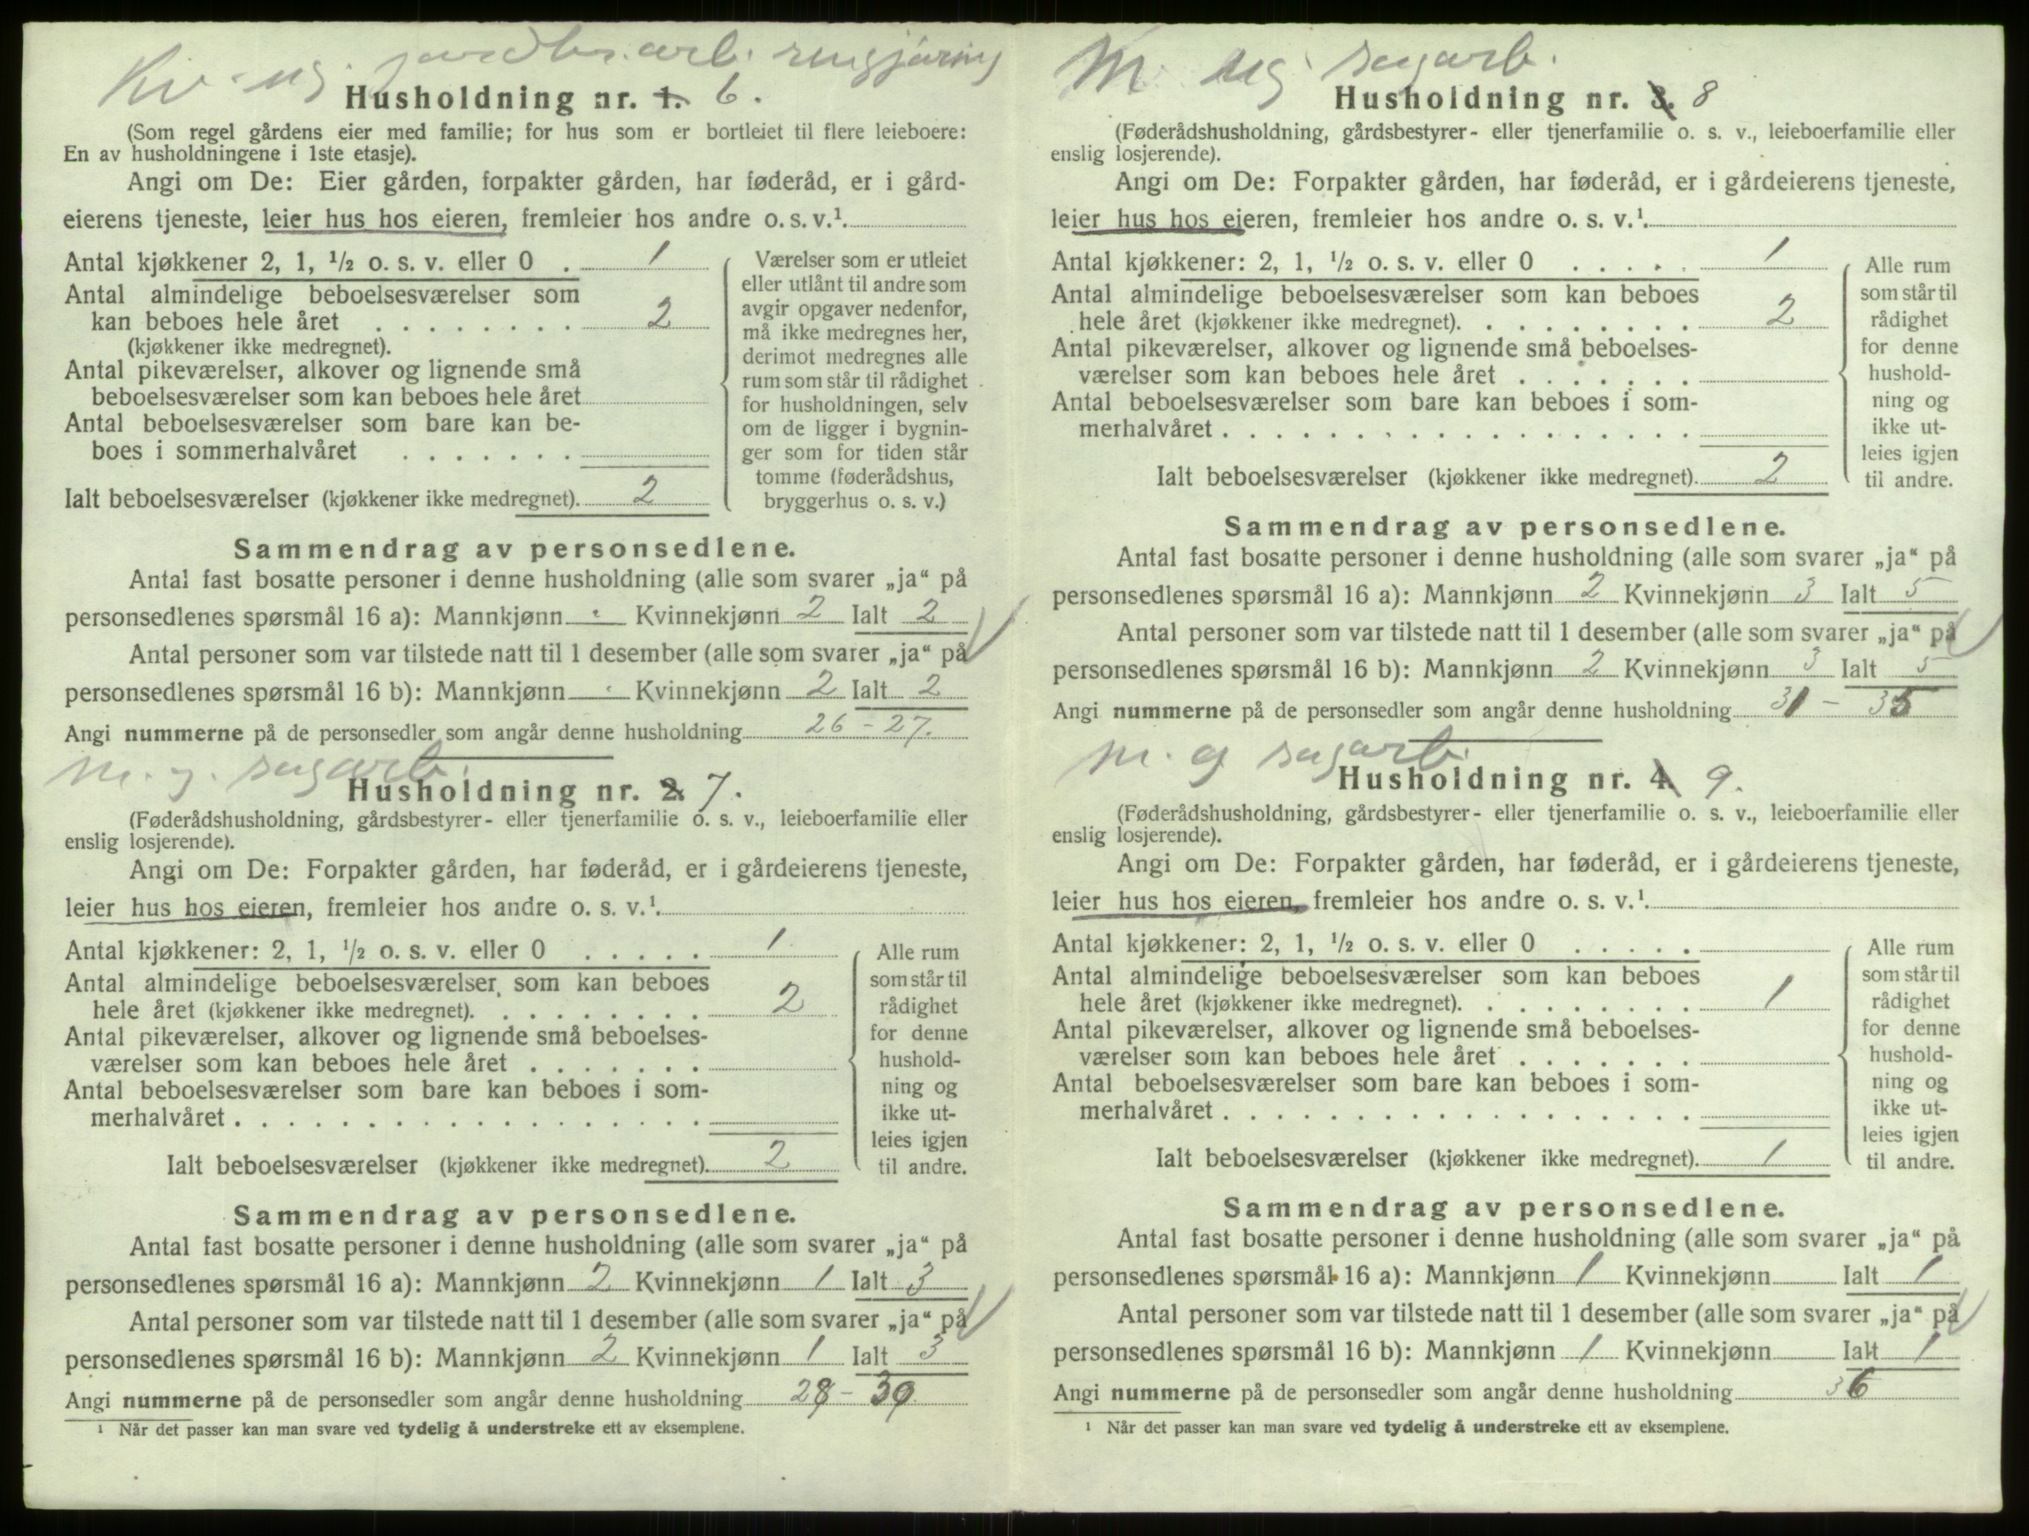 Kv. ug. jordbr.arb. rengjøring
Husholdning nr. 1. 6.
(Som regel gårdens eier med familie; for hus som er bortleiet til flere leieboere:
En av husholdningene i 1ste etasje).
Angi om De: Eier gården, forpakter gården, har føderåd, er i gård-
eierens tjeneste, leier hus hos eieren, fremleier hos andre o. s. v.¹.
Antal kjøkkener 2, 1, ½ o. s. v. eller 0 . 1
Antal almindelige beboelsesværelser som
kan beboes hele året . . . . . . . . 2
(kjøkkener ikke medregnet).
Antal pikeværelser, alkover og lignende små
beboelsesværelser som kan beboes hele året
Antal beboelsesværelser som bare kan be-
boes i sommerhalvåret . . . . . . .
Ialt beboelsesværelser (kjøkkener ikke medregnet). 2
Værelser som er utleiet
eller utlånt til andre som
avgir opgaver nedenfor,
må ikke medregnes her,
derimot medregnes alle
rum som står til rådighet
for husholdningen, selv
om de ligger i bygnin-
ger som for tiden står
tomme (føderådshus,
bryggerhus o. s. v.)
Sammendrag av personsedlene.
Antal fast bosatte personer i denne husholdning (alle som svarer „ja“ på
personsedlenes spørsmål 16 a): Mannkjønn - Kvinnekjønn 2 Ialt 2
Antal personer som var tilstede natt til 1 desember (alle som svarer „ja“ på
personsedlenes spørsmål 16 b): Mannkjønn - Kvinnekjønn 2 Ialt 2
Angi nummerne på de personsedler som angår denne husholdning 26 - 27.
m. g. sagarb.
Husholdning nr. 2. 7.
(Føderådshusholdning, gårdsbestyrer- eller tjenerfamilie o. s. v., leieboerfamilie eller
enslig losjerende).
Angi om De: Forpakter gården, har føderåd, er i gårdeierens tjeneste,
leier hus hos eieren, fremleier hos andre o. s. v.¹.
Antal kjøkkener: 2, 1, ½ o. s. v. eller 0 . . . . . 1
Antal almindelige beboelsesværelser som kan beboes
hele året (kjøkkener ikke medregnet). . . . . . . . . 2
Antal pikeværelser, alkover og lignende små beboelses-
værelser som kan beboes hele året . . . . . . .
Antal beboelsesværelser som bare kan beboes i som-
merhalvåret . . . . . . . . . . . . . . . . . .
Ialt beboelsesværelser (kjøkkener ikke medregnet). 2
Alle rum
som står til
rådighet
for denne
hushold-
ning og
ikke ut-
leies igjen
til andre.
Sammendrag av personsedlene.
Antal fast bosatte personer i denne husholdning (alle som svarer „ja“ på
personsedlenes spørsmål 16 a): Mannkjønn 2 Kvinnekjønn 1 Ialt 3
Antal personer som var tilstede natt til 1 desember (alle som svarer „ja“ på
personsedlenes spørsmål 16 b): Mannkjønn 2 Kvinnekjønn 1 Ialt 3
Angi nummerne på de personsedler som angår denne husholdning 28 - 30
¹ Når det passer kan man svare ved tydelig å understreke ett av eksemplene.
M ug sagarb.
Husholdning nr. 3. 8
(Føderådshusholdning, gårdsbestyrer- eller tjenerfamilie o. s. v., leieboerfamilie eller
enslig losjerende).
Angi om De: Forpakter gården, har føderåd, er i gårdeierens tjeneste,
leier hus hos eieren, fremleier hos andre o. s. v.¹.
Antal kjøkkener: 2, 1, ½ o. s. v. eller 0 . . . . . 1
Antal almindelige beboelsesværelser som kan beboes
hele året (kjøkkener ikke medregnet). . . . . . . . . 2
Antal pikeværelser, alkover og lignende små beboelses-
værelser som kan beboes hele året . . . . . . .
Antal beboelsesværelser som bare kan beboes i som-
merhalvåret . . . . . . . . . . . . . . . . . .
Ialt beboelsesværelser (kjøkkener ikke medregnet). 2
Alle rum
som står til
rådighet
for denne
hushold-
ning og
ikke ut-
leies igjen
til andre.
Sammendrag av personsedlene.
Antal fast bosatte personer i denne husholdning (alle som svarer „ja“ på
personsedlenes spørsmål 16 a): Mannkjønn 2 Kvinnekjønn 3 Ialt 5
Antal personer som var tilstede natt til 1 desember (alle som svarer „ja“ på
personsedlenes spørsmål 16 b): Mannkjønn 2 Kvinnekjønn 3 Ialt 5
Angi nummerne på de personsedler som angår denne husholdning 31 - 35
m. g sagarb.
Husholdning nr. 4. 9.
(Føderådshusholdning, gårdsbestyrer- eller tjenerfamilie o. s. v., leieboerfamilie eller
enslig losjerende).
Angi om De: Forpakter gården, har føderåd, er i gårdeierens tjeneste,
leier hus hos eieren, fremleier hos andre o. s. v.¹.
Antal kjøkkener: 2, 1, ½ o. s. v. eller 0 . . . . .
Antal almindelige beboelsesværelser som kan beboes
hele året (kjøkkener ikke medregnet). . . . . . . . . 1
Antal pikeværelser, alkover og lignende små beboelses-
værelser som kan beboes hele året . . . . . . .
Antal beboelsesværelser som bare kan beboes i som-
merhalvåret . . . . . . . . . . . . . . . . . .
Ialt beboelsesværelser (kjøkkener ikke medregnet). 1
Alle rum
som står til
rådighet
for denne
hushold-
ning og
ikke ut-
leies igjen
til andre.
Sammendrag av personsedlene.
Antal fast bosatte personer i denne husholdning (alle som svarer „ja“ på
personsedlenes spørsmål 16 a): Mannkjønn 1 Kvinnekjønn Ialt 1
Antal personer som var tilstede natt til 1 desember (alle som svarer „ja“ på
personsedlenes spørsmål 16 b): Mannkjønn 1 Kvinnekjønn Ialt 1
Angi nummerne på de personsedler som angår denne husholdning 36
¹ Når det passer kan man svare ved tydelig å understreke ett av eksemplene.